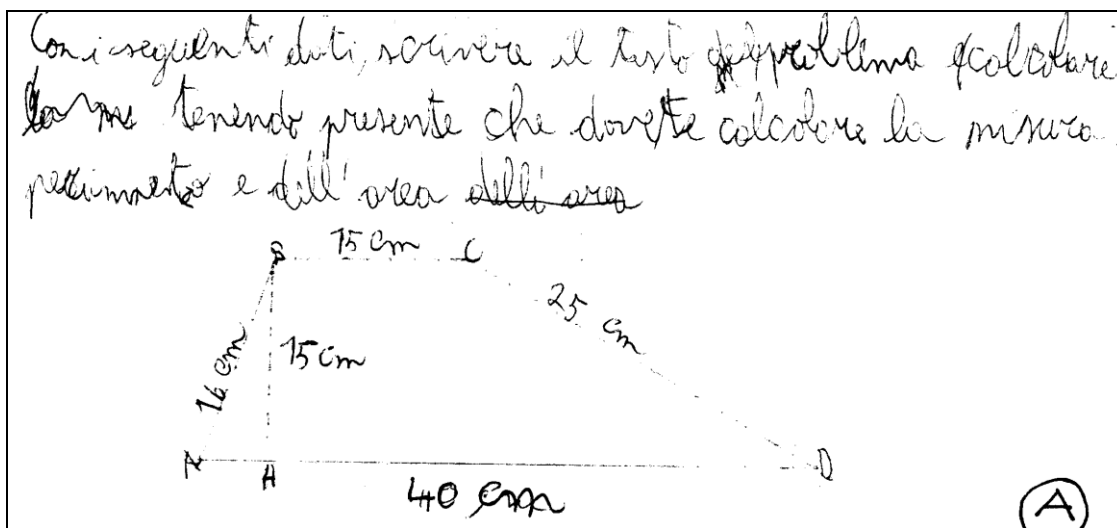 Con i seguenti dati, scrivere il testo del problema e calcolare
tenendo presente che dovete calcolare la misura
perimetro e dell'area dell'area
B 15 cm C
25 cm
16 cm
15 cm
A H D
40 cm
A